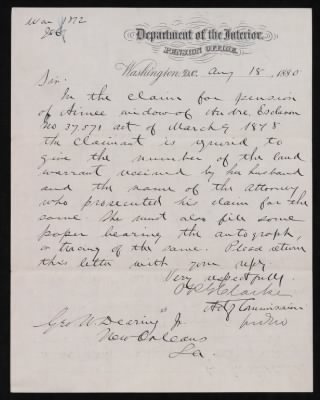 War 1812
Department of the Interior,
PENSION OFFICE,
Washington, D.C. Aug 18, 1880
Sir:
In the claim for pension
of Aimee widow of Andre
No 37,571 act of March 9 1878
the claimant is required to
give the number of the land
warrant received by her husband
and the name of the attorney
who prosecuted his claim for the
same. She must also file some
paper bearing the autograph,
or tracing of the same. Please return
this letter with your reply.
Very respectfully
Clarke
Act'g Commissioner
Geo W. Dearing Jr
New Orleans
La.